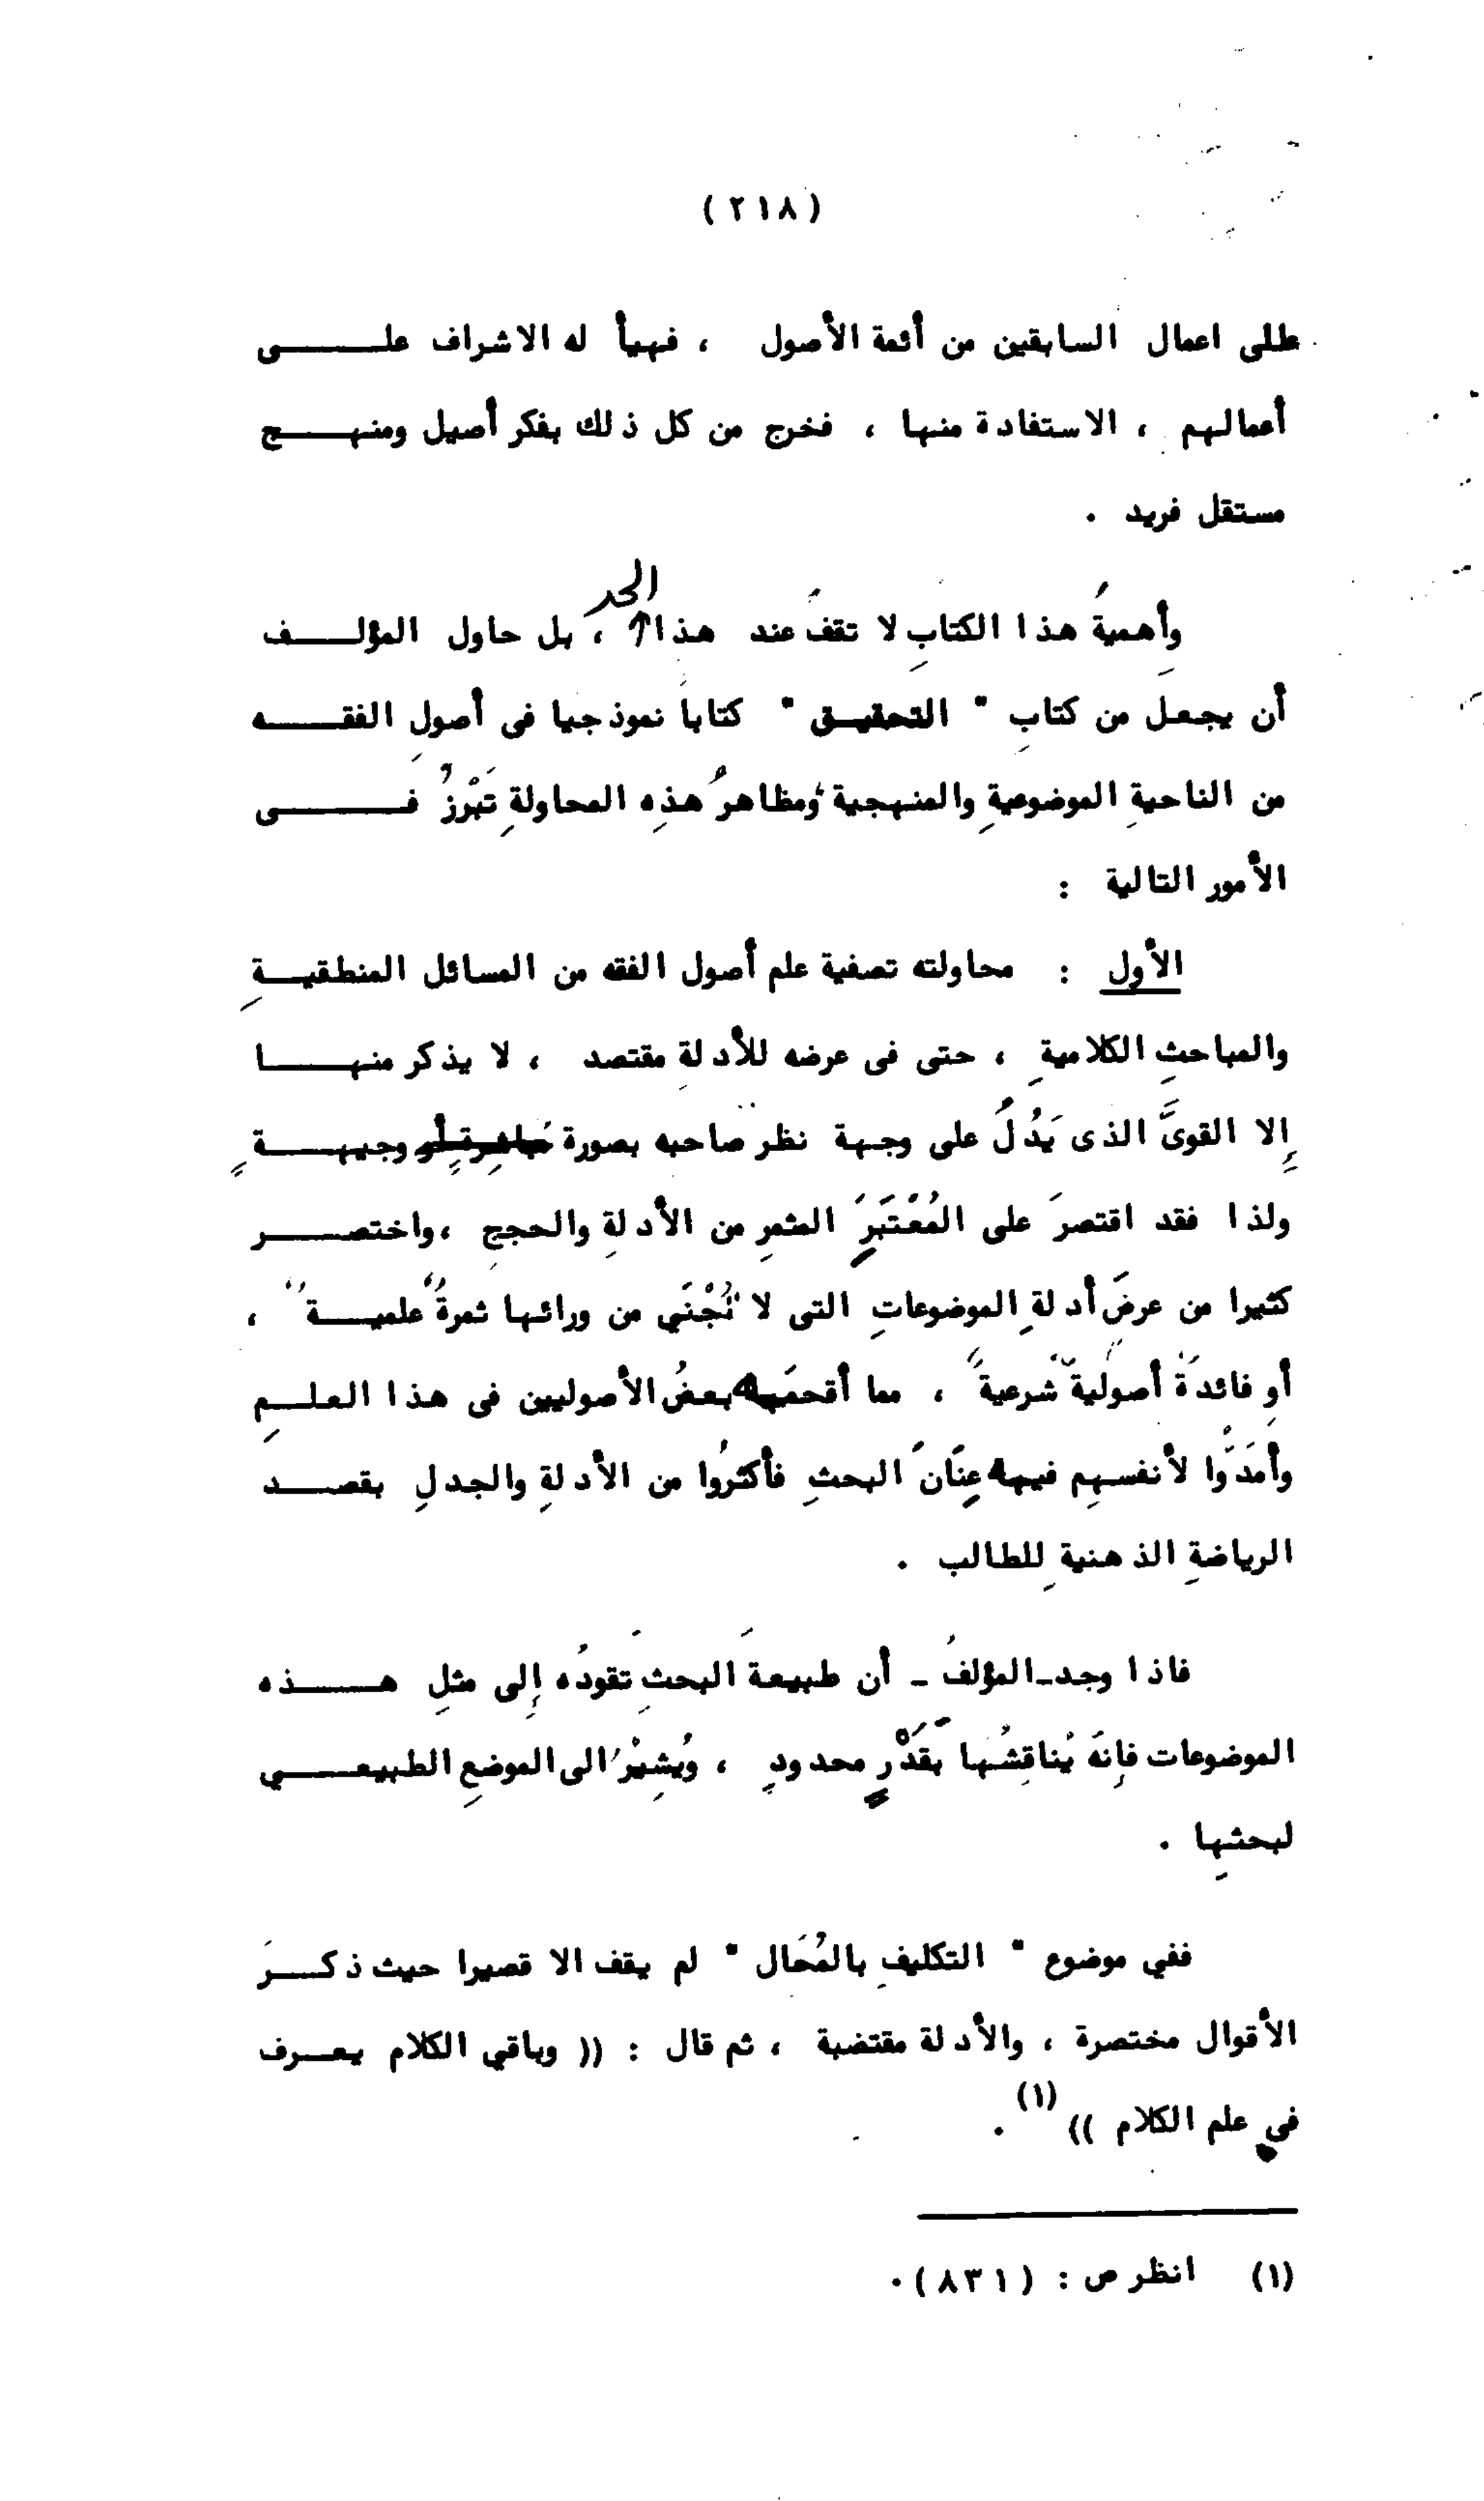 (٢١٨)
عللى اعمال السابقين من أئمة الأصول ، فهيأ له الاشراف علـــى
أعمالهم ، الاستفادة منها ، فخرج من كل ذلك بفكر أصيل ومنهـــج
مستقل فريد .
وأهميةُ هذا الكتابِ لا تقفُ عند هذا الحد ، بل حاول المؤلـــف
أن يجعلَ من كتابِ " التحقيـق " كتاباً نموذجيا فى أصولِ الفقـــه
من الناحيةِ الموضوعيةِ والمنهجية ومظاهرُ هذِه المحاولةِ تَبْرزُ فـــى
الأمور التالية :
الأول : محاولته تصفية علم أصول الفقه من المسائل المنطقيـــةِ
والمباحثِ الكلاميةِ ، حتى فى عرضه للأدلةِ مقتصد ، لا يذكر منهـــا
إِلا القوىَّ الذى يَدُلُ على وجهة نظر صاحبه بصورة وجيهـــةٍ
ولذا فقد اقتصرَ على المُعْتَبَرِ المثمرِ من الأدلةِ والحججِ ،واختصـــر
كثيرا من عرضَ أدلةِ الموضوعاتِ التى لا تُجْنَي من ورائها ثمرةٌ علميـــة ،
أو فائدة أصولية شرعية ، مما أقحمَها بعضُ الأصوليين فى هذا العلـــمِ
وأمَدَّوا لأنفسهِم فيها عِنَانَ البحثِ فأكثرُوا من الأدلةِ والجدلِ بقصـــد
الرياضةِ الذهنيةِ للطالب .
فاذا وجد ـ المؤلفُ ـ أن طبيعةَ البحثِ تَقودُه إِلى مثلِ هـــذه
الموضوعات فإِنهَ يُناقِشُها بَقَدْرٍ محدودٍ ، وَيُشِيْرُ الى الموضعِ الطبيعـــي
لبحثِها .
ففي موضوع " التكليفِ بالمُحَال " لم يقف الا قصيرا حيث ذكـــرَ
الأقوال مختصرة ، والأدلة مقتضبة ، ثم قال : (( وباقي الكلام يعـرف
في علم الكلام )) (١) .
(١) انظر ص : (٨٣١) .